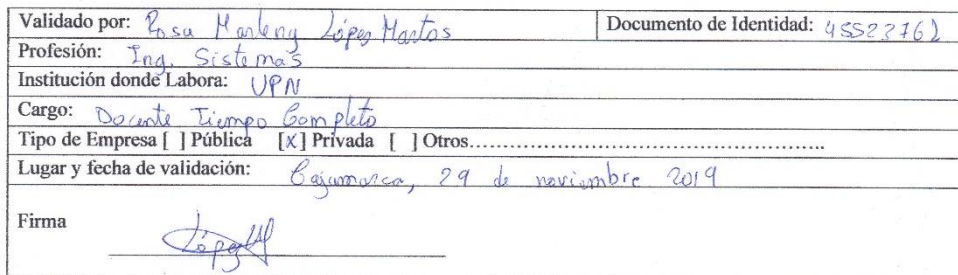 Validado por: Rosa Marleny López Martos Documento de Identidad: 45523762
Profesión: Ing. Sistemas
Institución donde Labora: UPN
Cargo: Docente Tiempo Completo
Tipo de Empresa [ ] Pública [x] Privada [ ] Otros.......................................................
Lugar y fecha de validación: Cajamarca, 29 de noviembre 2019
Firma
López